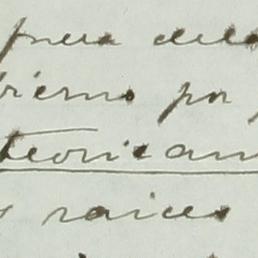 fuera del
bierno por
teoricam
raices